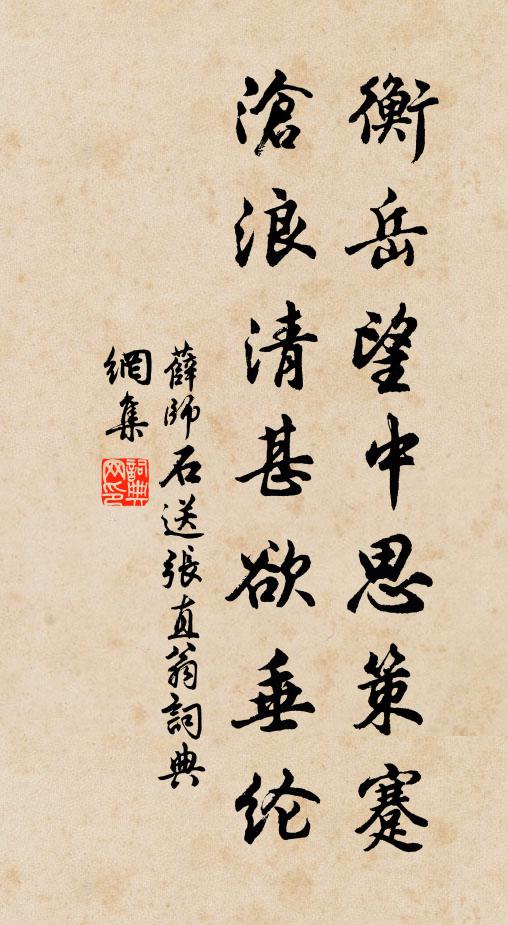 衡岳望中思策蹇
滄浪清甚欲垂纶
薛師石送張直翁詞典
網集
詞典網印